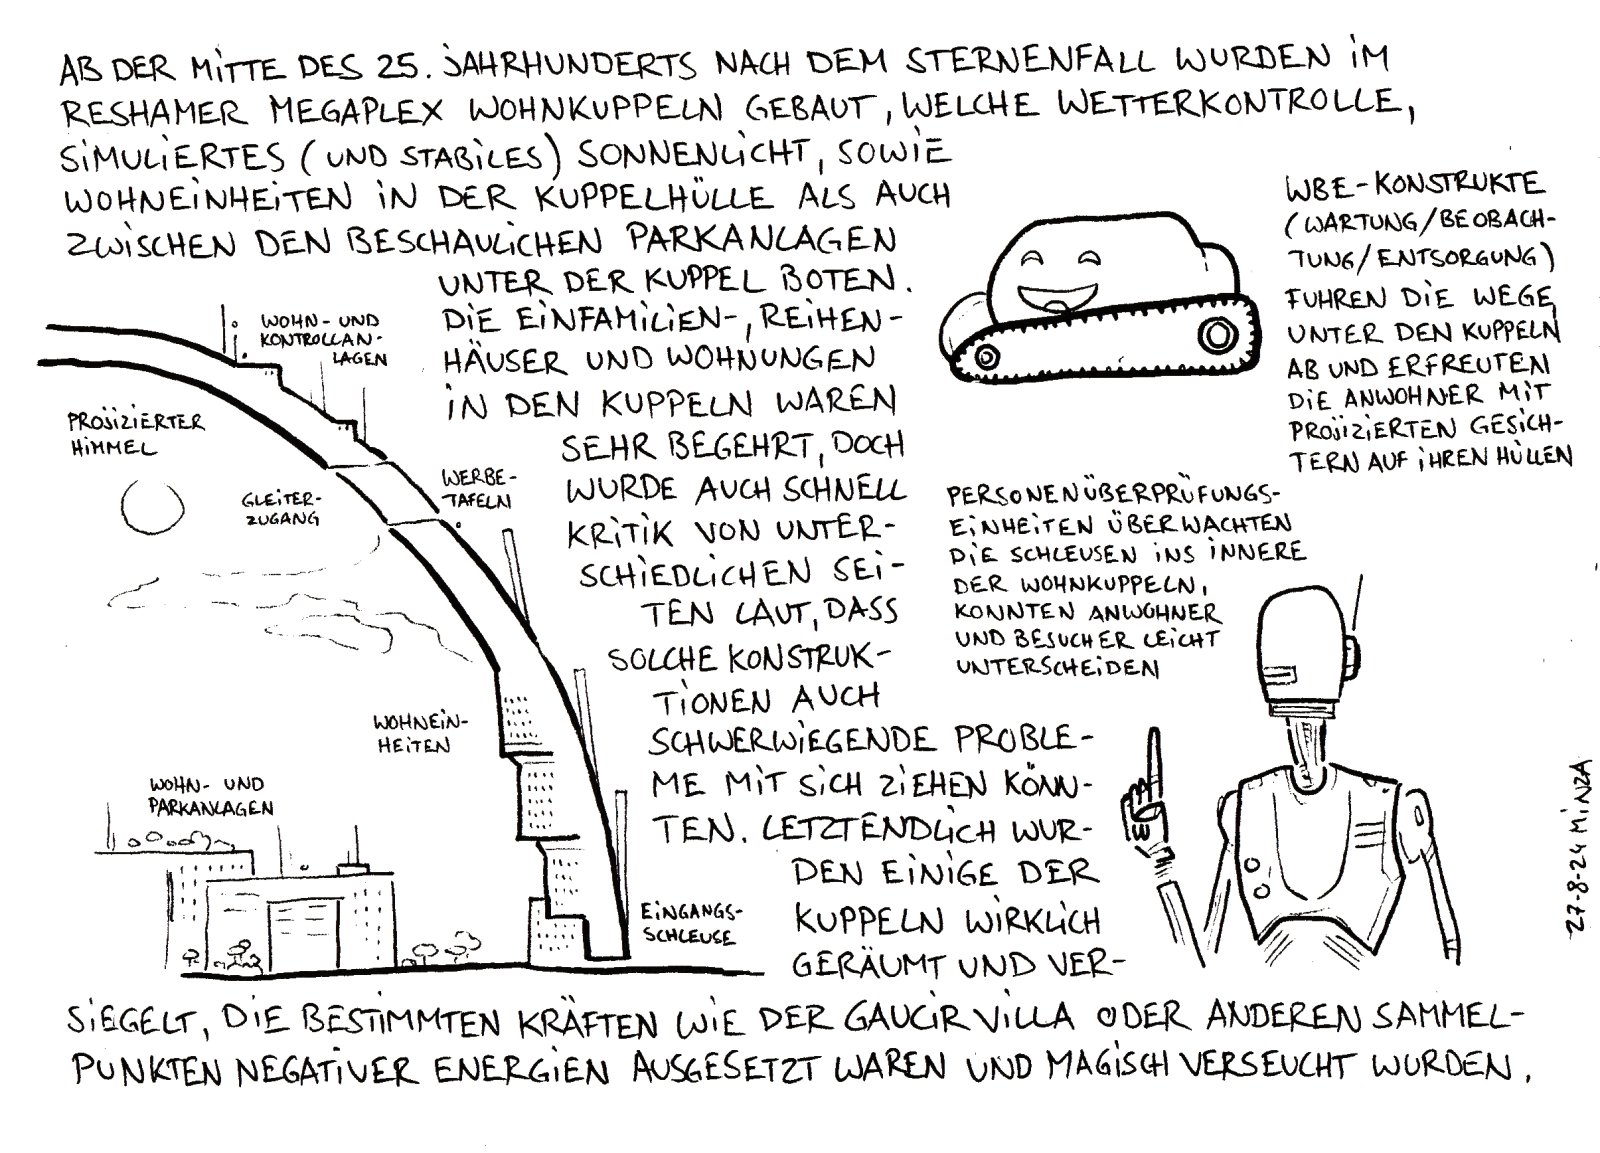 AB DER MITTE DES 25. JAHRHUNDERTS NACH DEM STERNENFALL WURDEN IM
RESHAMER MEGAPLEX WOHNKUPPELN GEBAUT, WELCHE WETTERKONTROLLE,
SIMULIERTES (UND STABILES) SONNENLICHT, SOWIE
WOHNEINHEITEN IN DER KUPPELHÜLLE ALS AUCH
ZWISCHEN DEN BESCHAULICHEN PARKANLAGEN
UNTER DER KUPPEL BOTEN.
DIE EINFAMILIEN-, REIHEN-
HÄUSER UND WOHNUNGEN
IN DEN KUPPELN WAREN
SEHR BEGEHRT, DOCH
WURDE AUCH SCHNELL
KRITIK VON UNTER-
SCHIEDLICHEN SEI-
TEN LAUT, DASS
SOLCHE KONSTRUK-
TIONEN AUCH
SCHWERWIEGENDE PROBLE-
ME MIT SICH ZIEHEN KÖNN-
TEN. LETZTENDLICH WUR-
DEN EINIGE DER
KUPPELN WIRKLICH
GERÄUMT UND VER-
SIEGELT, DIE BESTIMMTEN KRÄFTEN WIE DER GAUCIR VILLA ODER ANDEREN SAMMEL-
PUNKTEN NEGATIVER ENERGIEN AUSGESETZT WAREN UND MAGISCH VERSEUCHT WURDEN.
WOHN- UND
KONTROLLAN-
LAGEN
PROJIZIERTER
HIMMEL
GLEITER-
ZUGANG
WERBE-
TAFELN
WOHNEIN-
HEITEN
WOHN- UND
PARKANLAGEN
EINGANGS-
SCHLEUSE
WBE-KONSTRUKTE
(WARTUNG/BEOBACH-
TUNG/ENTSORGUNG)
FUHREN DIE WEGE
UNTER DEN KUPPELN
AB UND ERFREUTEN
DIE ANWOHNER MIT
PROJIZIERTEN GESICH-
TERN AUF IHREN HÜLLEN
PERSONENÜBERPRÜFUNGS-
EINHEITEN ÜBERWACHTEN
DIE SCHLEUSEN INS INNERE
DER WOHNKUPPELN,
KONNTEN ANWOHNER
UND BESUCHER LEICHT
UNTERSCHEIDEN
27-8-24 MINZA